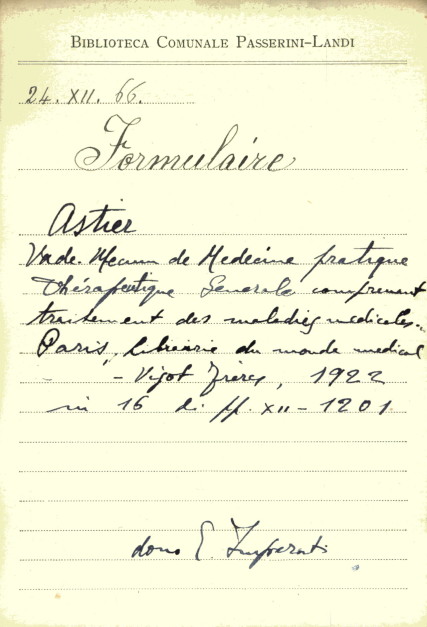 BIBLIOTECA COMUNALE PASSERINI-LANDI
24. XII. 66.
Formulaire
Astier
Vade. Mecum de Medecine pratique
Thérapeutique Generale comprenant
traitement des maladies medicales.
Paris, Librairie du monde medical
- Vigot Frères, 1922
in 16 di pp. XII - 1201
dono E. Imperati